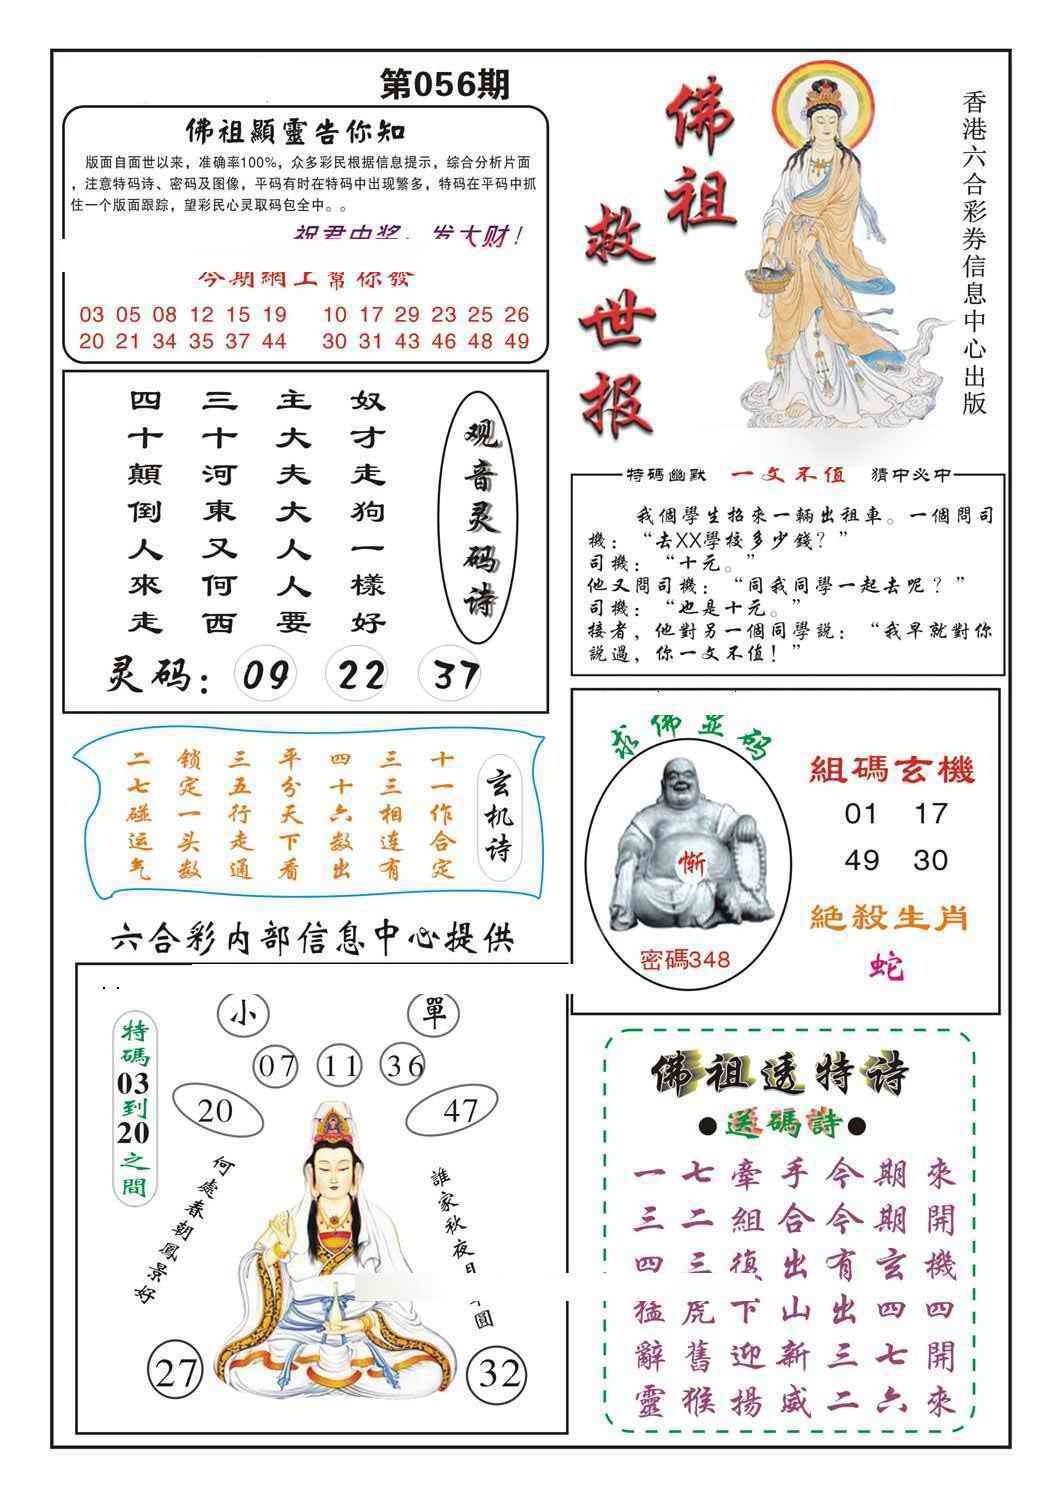 第056期
佛祖顯靈告你知
版面自面世以来，准确率100%，众多彩民根据信息提示，综合分析片面
，注意特码诗、密码及图像，平码有时在特码中出现繁多，特码在平码中抓
住一个版面跟踪，望彩民心灵取码包全中。。
祝君中奖，发大财！
今期網上幫你發
03 05 08 12 15 19 10 17 29 23 25 26
20 21 34 35 37 44 30 31 43 46 48 49
佛祖
救世报
香港六合彩券信息中心出版
观音灵码诗
奴才走狗一樣好
主大夫大人人要
三十河東又何西
四十顛倒人來走
灵码：09 22 37
特碼幽默 一文不值 猜中必中
我個學生招來一輛出租車。一個問司
機：“去XX學校多少錢？”
司機：“十元。”
他又問司機：“同我同學一起去呢？”
司機：“也是十元。”
接者，他對另一個同學説：“我早就對你
説過，你一文不值！”
玄机诗
十一作合定
三三相连有
四十六数出
平分天下看
三五行走通
锁定一头数
二七碰运气
求佛显码
惭
密碼348
組碼玄機
01 17
49 30
絶殺生肖
蛇
六合彩内部信息中心提供
小 單
07 11 36
20 47
特碼03到20之間
何處春朝鳳景好
誰家秋夜月 圓
27 32
佛祖透特诗
●送碼詩●
一七牽手今期來
三二組合今期開
四三復出有玄機
猛虎下山出四四
辭舊迎新三七開
靈猴揚威二六來